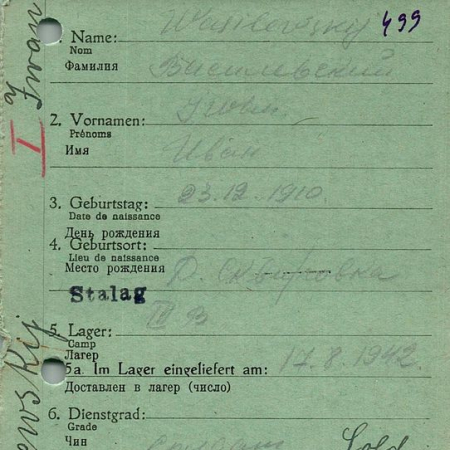 499
1. Name: Wasilewskij
Nom
Фамилия Василевский
2. Vornamen: Iwan
Prénoms
Имя Иван
3. Geburtstag: 23.12.1910.
Date de naissance
День рождения
4. Geburtsort:
Lieu de naissance
Место рождения
Stalag
5. Lager:
Camp
Лагер
5a. Im Lager eingeliefert am: 17.8.1942
Доставлен в лагер (число)
6. Dienstgrad:
Grade
Чин солдат Sold
I
Iwan
ewskij